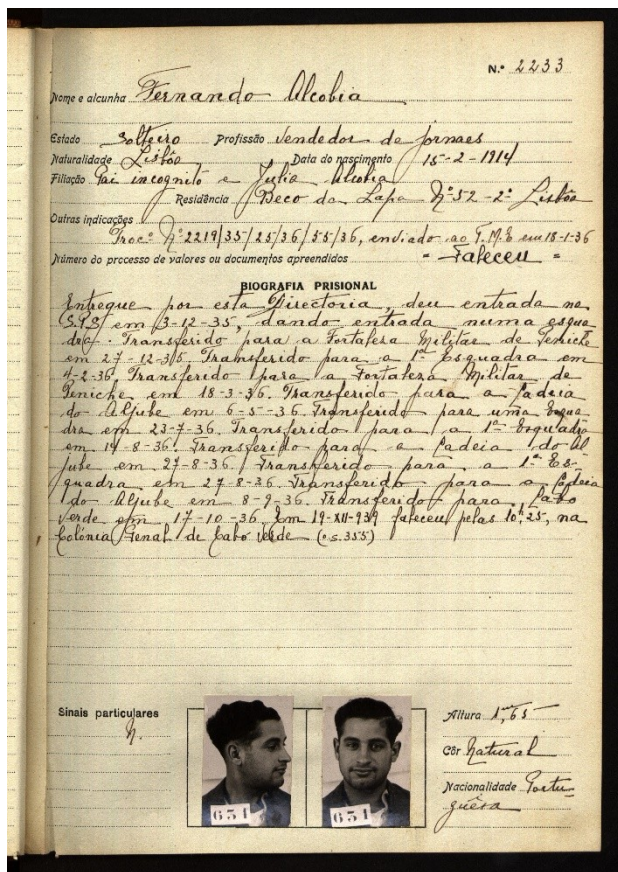 N.º 2233
Nome e alcunha Fernando Alcobia
Estado Solteiro Profissão Vendedor de jornaes
Naturalidade Lisbôa Data do nascimento 15-2-1914
Filiação Pai incognito e Julia Alcobia
Residência Beco da Lapa Nº 52-2º Lisbôa
Outras indicações
Procº Nº 2219/35/25/36/55/36, enviado ao T.M.E em 18-1-36
Número do processo de valores ou documentos apreendidos = Faleceu =
BIOGRAFIA PRISIONAL
Entregue por esta Directoria, deu entrada na
em 3-12-35, dando entrada numa esqua
dra. Transferido para a Fortaleza Militar de Peniche
em 27-12-35 Transferido para a 1ª Esquadra em
4-2-36 Transferido para a Fortaleza Militar de
Peniche em 18-3-36. Transferido para a Cadeia
do Aljube em 6-5-36. Transferido para uma Esqua
dra em 23-7-36. Transferido para a 1ª Esquadra
em 14-8-36. Transferido para a Cadeia do Al
jube em 27-8-36. Transferido para a 1ª Es-
quadra em 27-8-36. Transferido para a Cadeia
do Aljube em 8-9-36. Transferido para Cabo
Verde em 17-10-36. Em 19-XII-939 faleceu pelas 10h,25, na
Colónia Penal de Cabo Verde (o.s. 355)
Sinais particulares
N.
Altura 1m,65
Côr Natural
Nacionalidade Portu-
guêsa
631
631